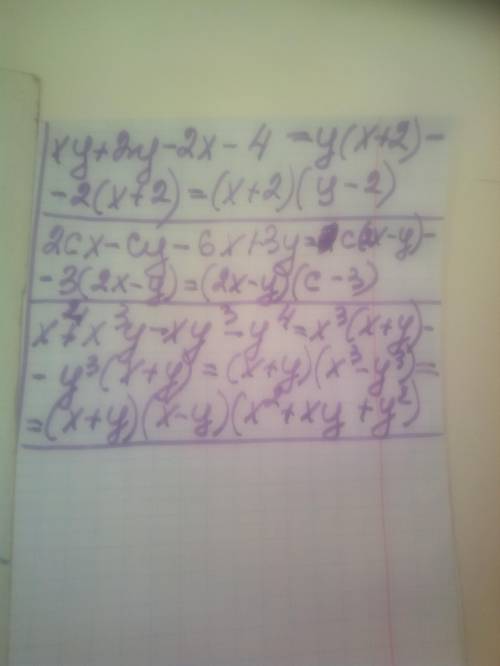 xy+2y-2x-4=y(x+2)-
-2(x+2)=(x+2)(y-2)
2cx-cy-6x+3y=c(2x-y)-
-3(2x-y)=(2x-y)(c-3)
x⁴+x³y-xy³-y⁴=x³(x+y)-
-y³(x+y)=(x+y)(x³-y³)=
=(x+y)(x-y)(x²+xy+y²)